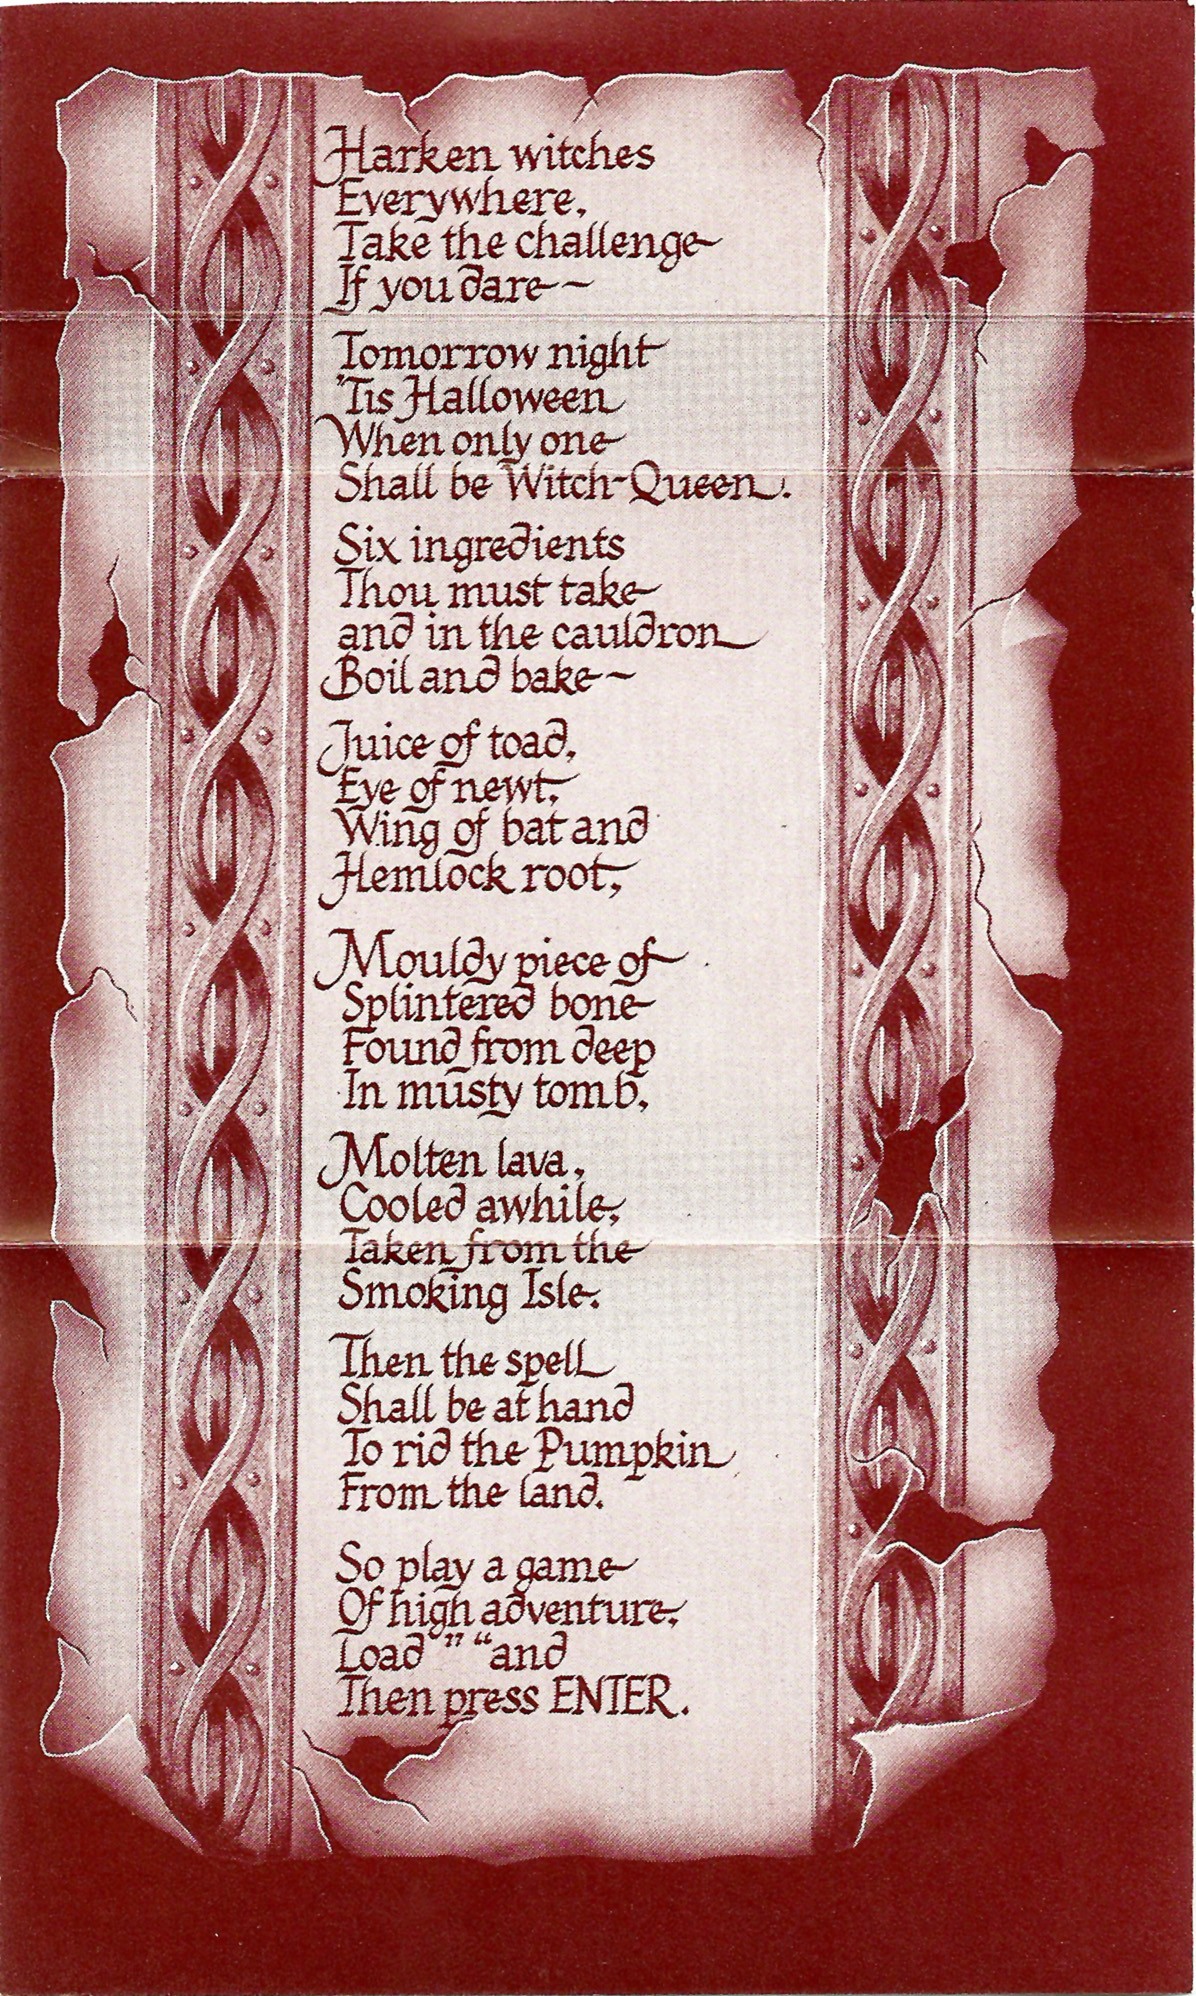 Harken witches
Everywhere,
Take the challenge
If you dare~~
Tomorrow night
'Tis Halloween
When only one
Shall be Witch-Queen.
Six ingredients
Thou must take
and in the cauldron
Boil and bake~
Juice of toad,
Eye of newt,
Wing of bat and
Hemlock root,
Mouldy piece of
Splintered bone
Found from deep
In musty tomb,
Molten lava,
Cooled awhile,
Taken from the
Smoking Isle.
Then the spell
Shall be at hand
To rid the Pumpkin
From the land.
So play a game
Of high adventure,
Load ” “ and
Then press ENTER.